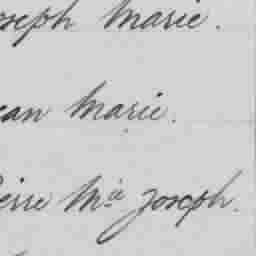 oseph Marie.
ean Marie.
ierre Mie Joseph.